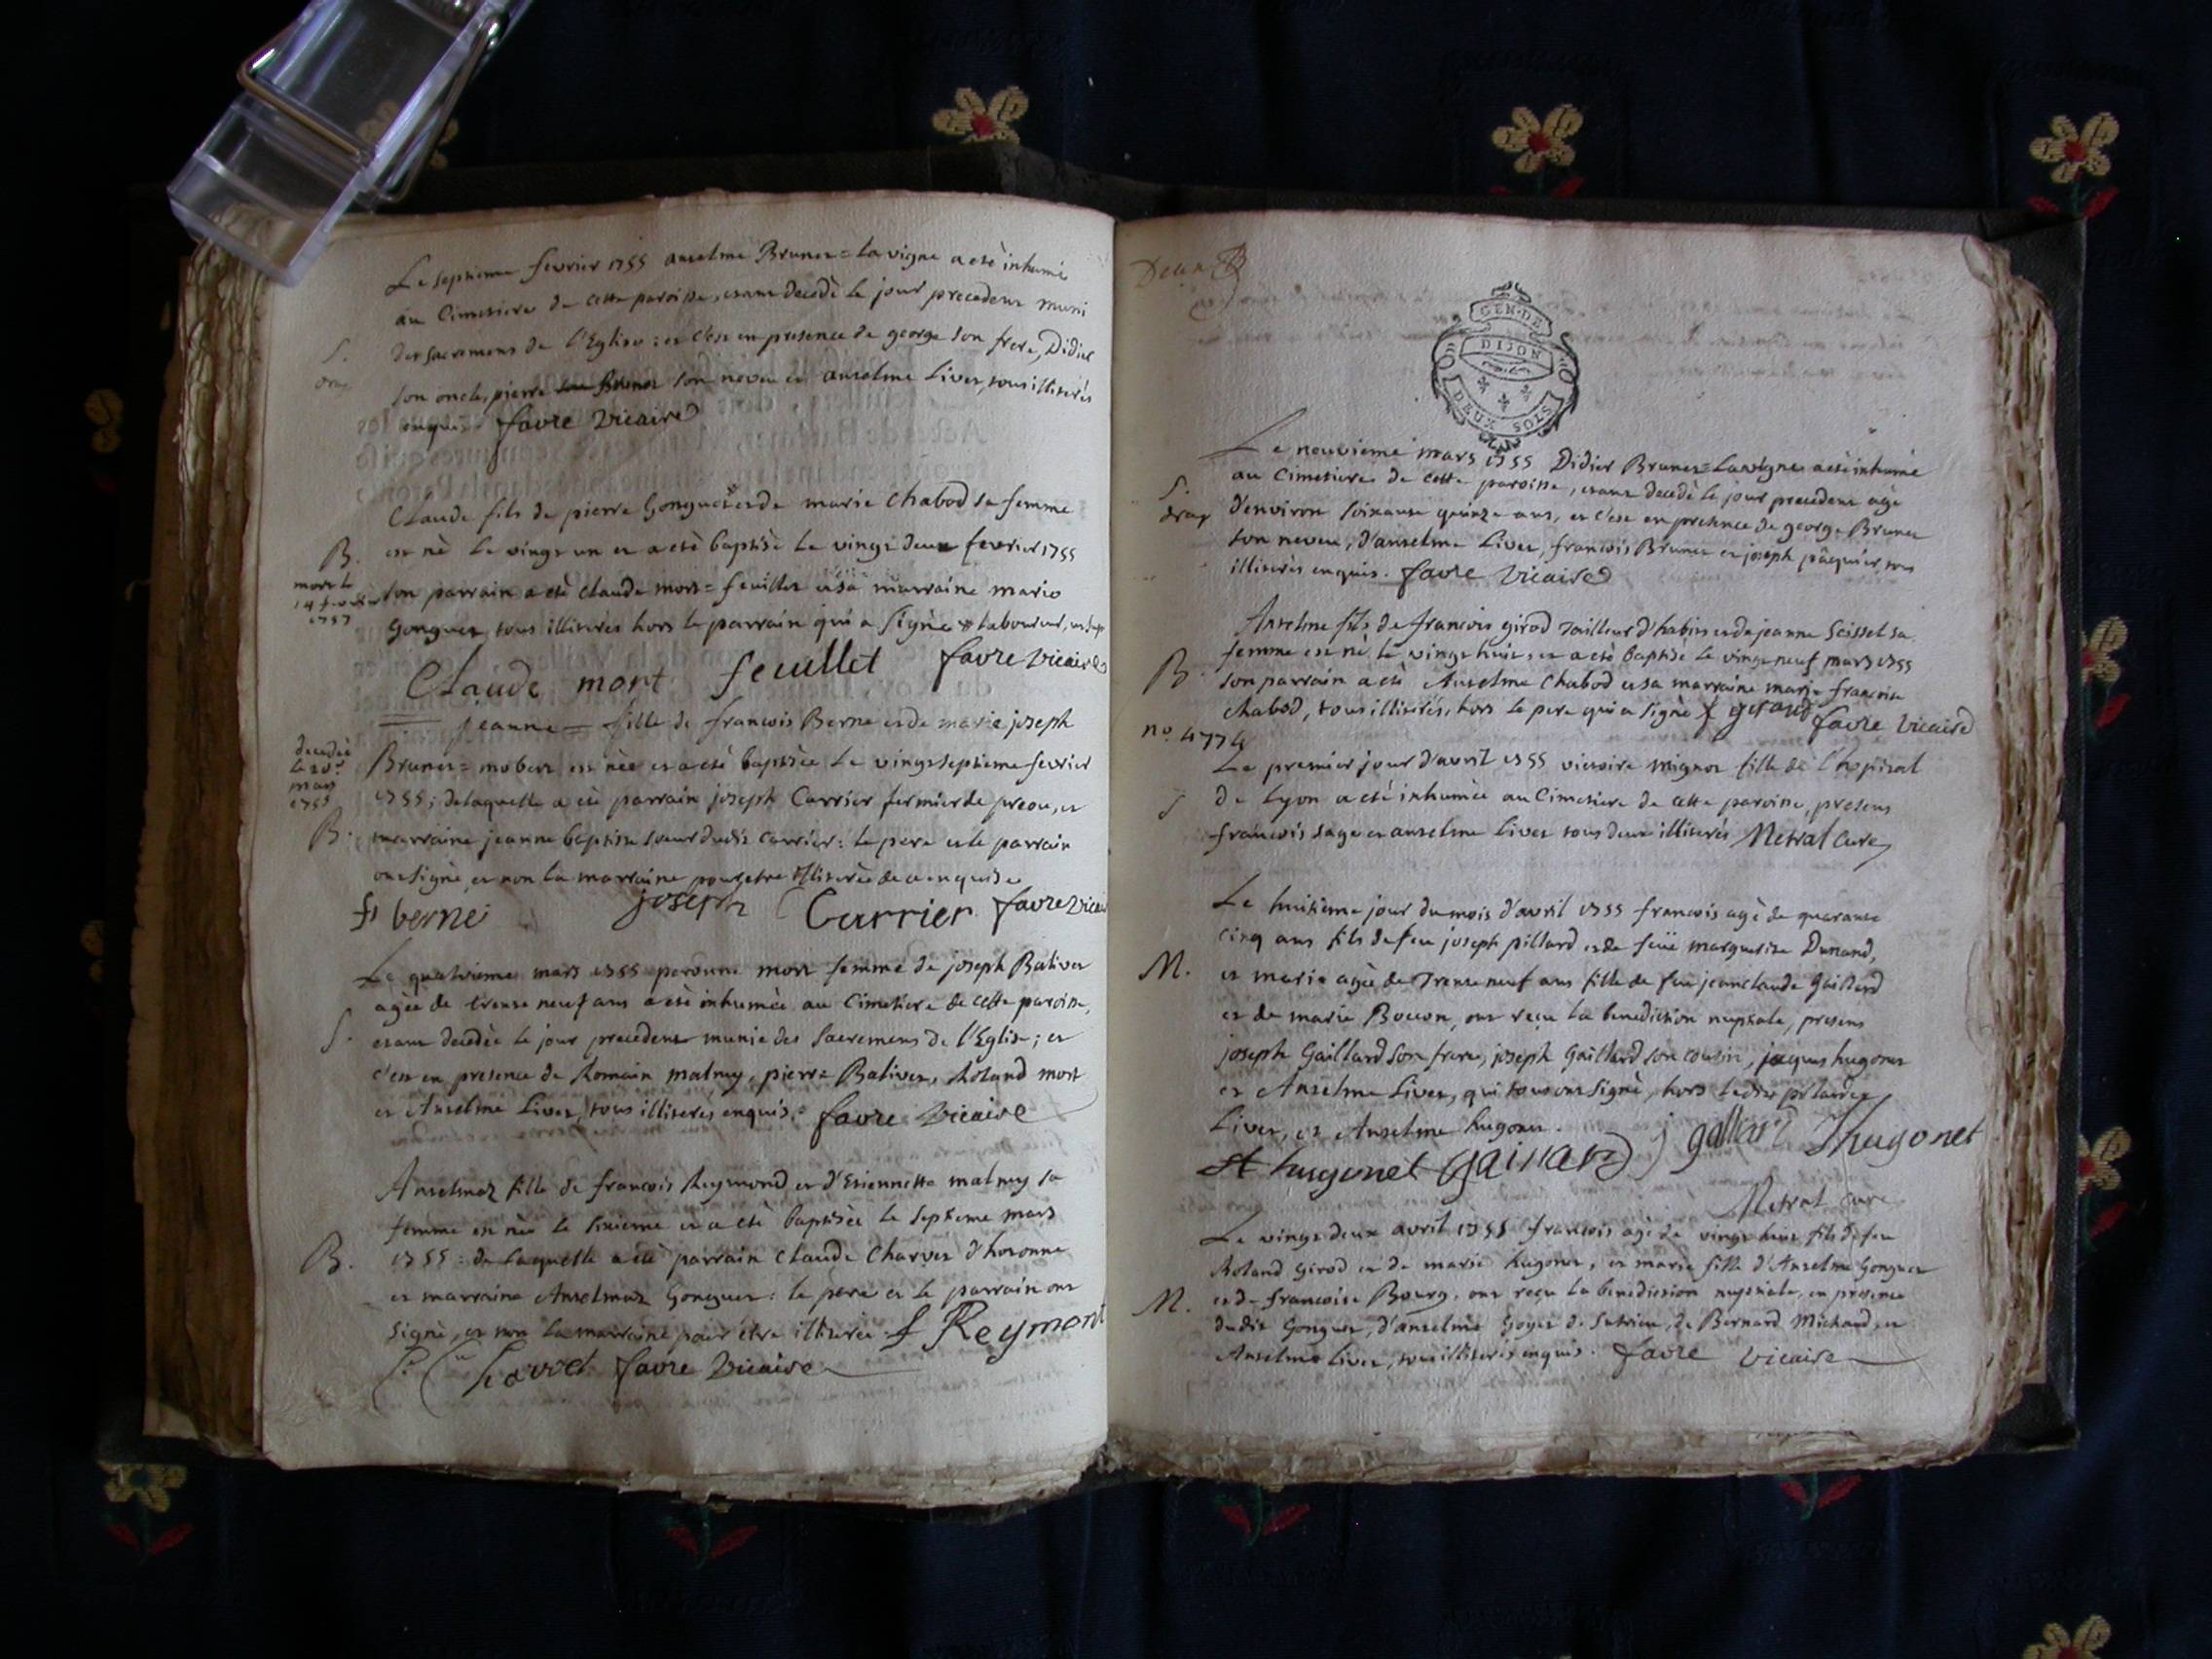 Le septieme fevrier 1755 anselme Brunet=lavigne a eté inhumé
au Cimetiere de cette paroisse, etant decedé le jour precedent muni
des sacremens de l'Eglise: et c'est en presence de george son frere, Didier
S.
son oncle, pierre son neveu et anselme Livet, tous illiterés
enquis. favre vicaire
Claude fils de pierre Gonguet et de marie Chabod sa femme
B.
est né le vingt un et a eté baptisé le vingt deux fevrier 1755
mort le
14 fevrier
1757
son parrain a eté Claude mort=feuillet et sa marraine marie
Gonguet, tous illiterés hors le parrain qui a signé
Claude mort feuillet favre vicaire
jeanne = fille de francois Berne et de marie joseph
decedée
le 20e
mars
1755
Brunet=mobert est née et a eté baptisée le vingt septieme fevrier
1755; de laquelle a eté parrain joseph Carrier fermier de preou, et
B.
marraine jeanne baptiste soeur dudit carrier: le pere et le parrain
ont signé et non la marraine pour etre illiterée de ce enquise
fs berne joseph Carrier favre vicaire
Le quatrieme mars 1755 peronne mort femme de joseph Balivet
agée de trente neuf ans a eté inhumée au Cimetiere de cette paroisse,
S.
etant decedée le jour precedent munie des Sacremens de l'Eglise; et
c'est en presence de Romain malmey, pierre Balivet, Roland mort
et Anselme Livet, tous illiterés, enquis. favre vicaire
Anselmaz fille de francois Reymond et d'Etiennette malmey sa
femme est née le sixieme et a eté baptisée le septieme mars
B.
1755: de laquelle a eté parrain Claude Charvet d'hotonne
et marraine Anselmaz Gonguet: le pere et le parrain ont
signé, et non la marraine pour etre illiterée. f Reymont
C Charvet favre vicaire
GEN. DE
DIJON
DEUX SOLS
Le neuvieme mars 1755 Didier Brunet=Lavigne a eté inhumé
au Cimetiere de cette paroisse, etant decedé le jour precedent agé
S.
drap
d'environ soixante quinze ans, et c'est en presence de george Brunet
son neveu, d'anselme Livet, francois Brunet et joseph pâquier, tous
illiterés enquis. favre vicaire
Anselme fils de francois girod tailleur d'habits et de jeanne Seissel sa
femme est né le vingt huit, et a eté baptisé le vingt neuf mars 1755
B
son parrain a eté Anselme Chabod et sa marraine marie francoise
chabod, tous illiterés, hors le pere qui a signé f giraud favre vicaire
no. 4774
Le premier jour d'avril 1755 victoire mignot fille de l'hopital
S
de Lyon a eté inhumée au Cimetiere de cette paroisse, presens
francois sage et anselme livet tous deux illiterés Metral Curé
Le huitieme jour du mois d'avril 1755 francois agé de quarante
cinq ans fils de feu joseph pillard et de feüe marguerite Dunand,
M.
et marie agée de Trente neuf ans fille de feu jeanclaude Gaillard
et de marie Bouvon, ont reçu la benediction nuptiale, presens
joseph Gaillard son frere, joseph Gaillard son cousin, jaques hugonet
et Anselme Livet, qui tous ont signé, hors ledit pillard et
Livet, et Anselme hugonet.
A hugonet Gaillard j gallard J hugonet
Metral curé
Le vingt deux avril 1755 francois agé de vingt huit fils de feu
Roland Girod et de marie hugonet, et marie fille d'Anselme Gonguet
M.
et de francoise Bourg, ont reçu la benediction nuptiale, en presence
dudit Gonguet, d'anselme Goyet de Sutrieu, de Bernard Michaud, et
Anselme livet, tous illiterés enquis. favre vicaire